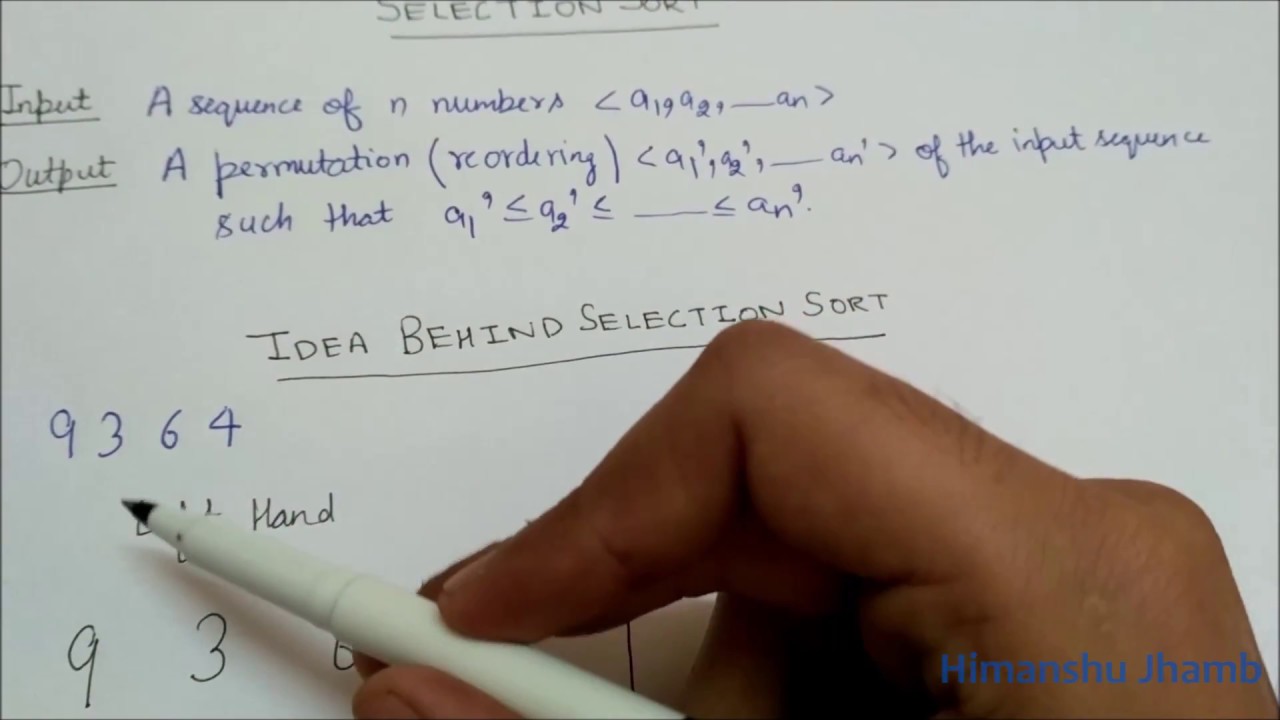 SELECTION SORT
Input A sequence of n numbers < a1, a2, — an >
Output A permutation (reordering) < a1', a2', — an' > of the input sequence
such that a1' ≤ a2' ≤ — ≤ an'.
IDEA BEHIND SELECTION SORT
9 3 6 4
Hand
9 3
Himanshu Jhamb